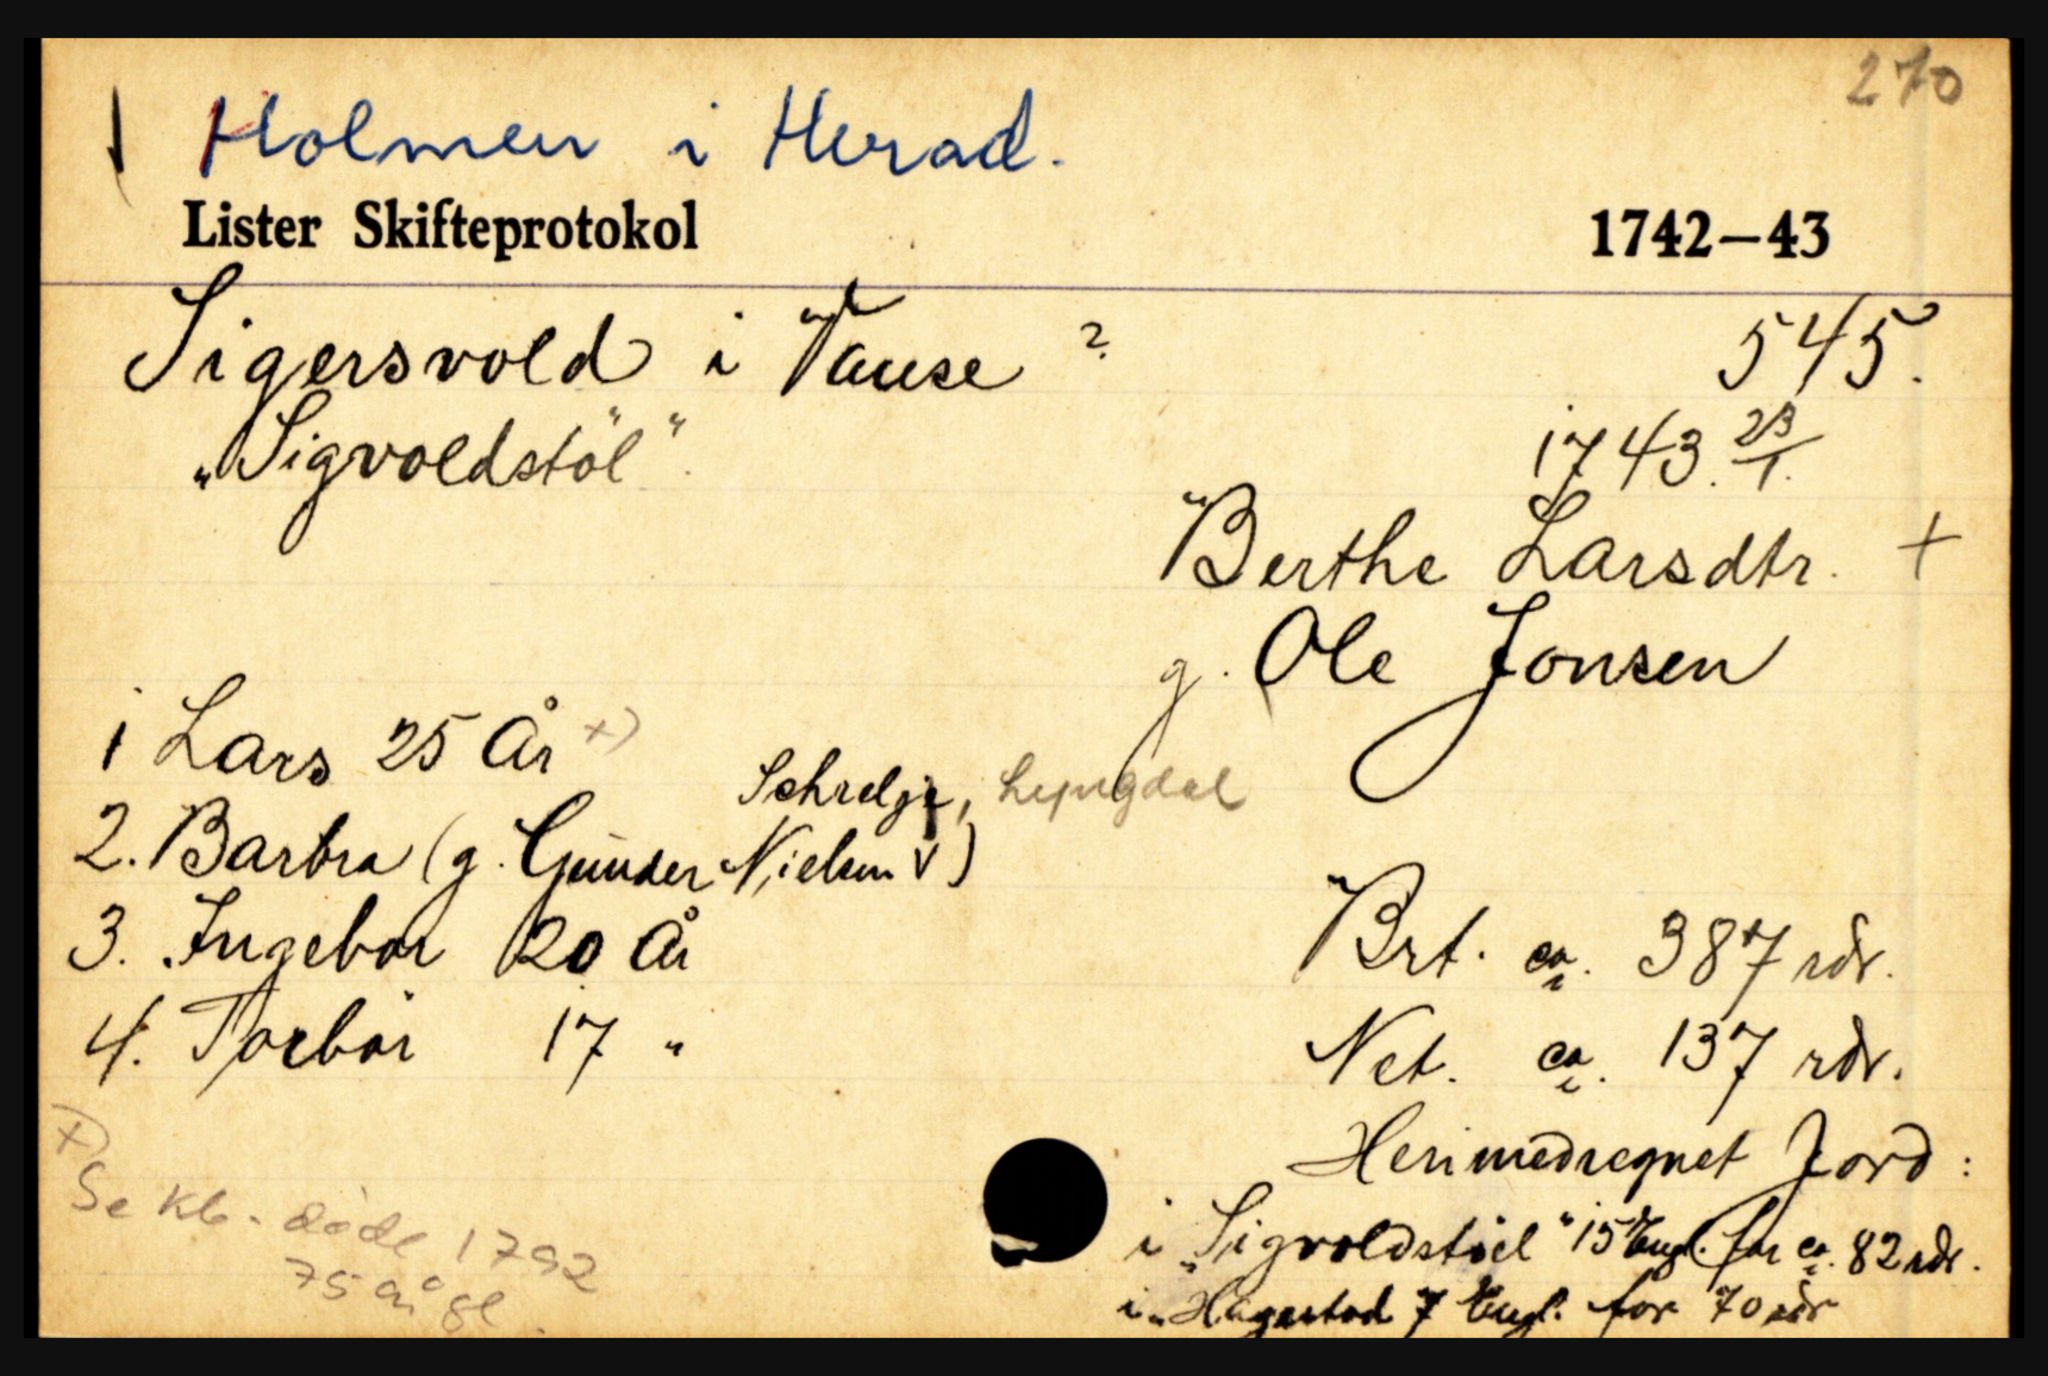 270
Holmen i Herad.
Lister Skifteprotokol 1742–43
Sigersvold i Vanse ? 545.
„Sigvoldstöl“. 1743. 23/1.
Berthe Larsdtr. +
g. Ole Jonsen
1 Lars 25 År +)
Schrelje, Lyngdal
2. Barbra (g. Gunder Nielsen v)
3. Ingebor 20 År
4. Torbor 17 "
Brt. ca. 387 rdr.
Net. ca. 137 rdr.
Heri medregnet Jord:
i „Sigvoldstöel“ 15 Eng. for ca. 82 rdr.
i „Hagestad 7 Engl. for 70 rdr
+)
Se Kb. døde 1792
75 år gl.